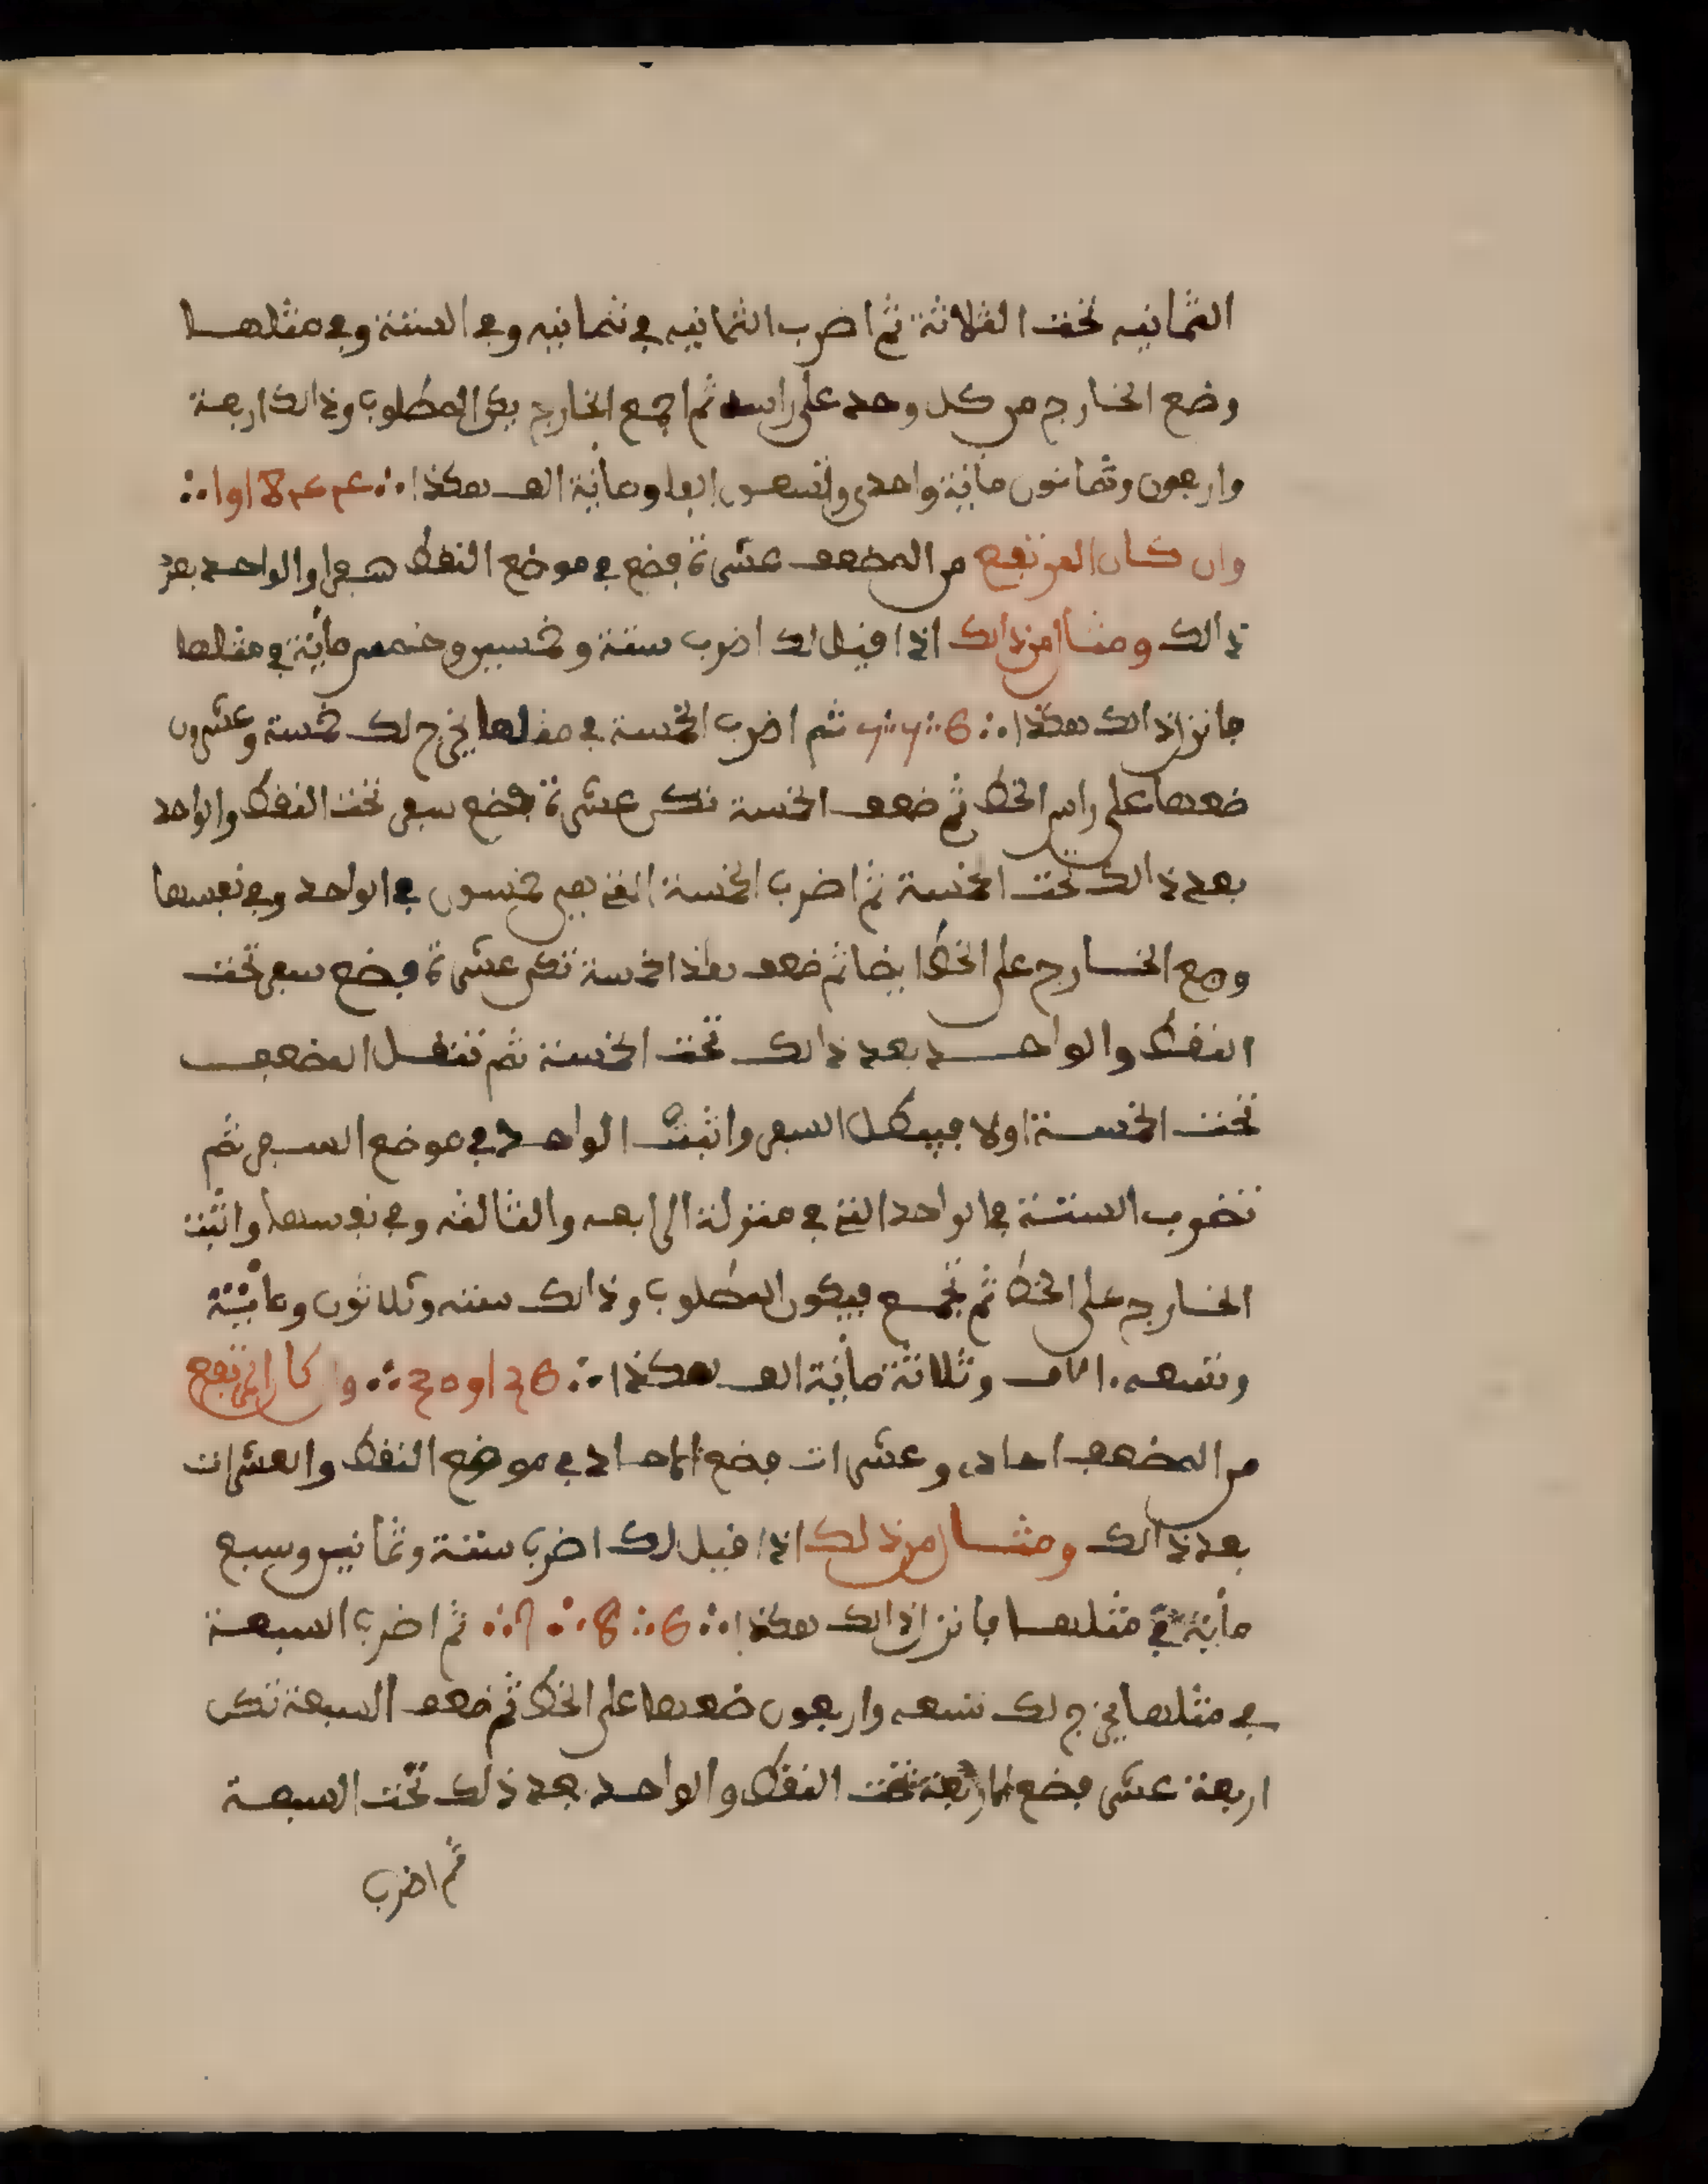 الثمانيه تحت الثلاثة ثم اضرب الثمانيه في ثمانيه وفي الستة وفي مثلها
وضع الخارج من كل وحد على راسه ثم اجمع الخارج يكن المطلوب وذالك اربعة
واربعون وثمانون ماية واحدى وتسعون الفا وماية الف هكذا
وان كان المرتفع من المضعف عشرة فضع في موضع النفط صفرا والواحد بعد
ذالك ومثال من ذالك اذا قيل لك اضرب ستة وخمسين وخمس مائة في مثلها
فانزل ذالك هكذا ثم اضرب الخمسة في مثلها يخرج لك خمسة وعشرون
ضعها على راس الخط ثم ضعف الخمسة تكن عشرة فضع سفر تحت النفط والواحد
بعد ذالك تحت الخمسة ثم اضرب الخمسة التي هي خمسون في الواحد وفي نفسها
وضع الخارج على الخط ايضا ثم ضعف هذا الخمسة تكن عشرة فضع سفر تحت
النفط والواحد بعد ذالك تحت الخمسة ثم تنقل المضعف
تحت الخمسة اولا فيبطل السفر واثبت الواحد في موضع السفر ثم
تضرب الستة في الواحد التي في منزلة الرابعه والثالثه وفي نفسها واثبت
الخارج على الخط ثم تجمع فيكون المطلوب وذالك ستة وثلاثون ومائة
وتسعه الاف وثلاثة مائة الف هكذا وا كان المرتفع
من المضعف احاد وعشرات فضع الاحاد في موضع النفط والعشرات
بعد ذالك ومثال من ذلك اذا قيل لك اضرب ستة وثمانين وسبع
مائة في مثلها فانزل ذالك هكذا 6 8 7 ثم اضرب السبعة
في مثلها يخرج لك تسعه واربعون ضعها على الخط ثم ضعف السبعة تكن
اربعة عشر فضع الاربعة تحت النفط والواحد بعد ذلك تحت السبعة
ثم اضرب